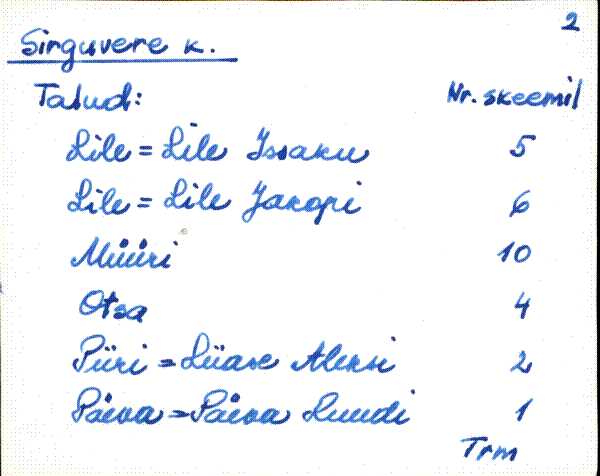 2
Sirguvere k.
Talud: Nr. skeemil
Lile = Lile Issaku 5
Lile = Lile Jakopi 6
Müüri 10
Otsa 4
Püri = Lüase Aleksi 2
Päeva = Päeva Juudi 1
Trm